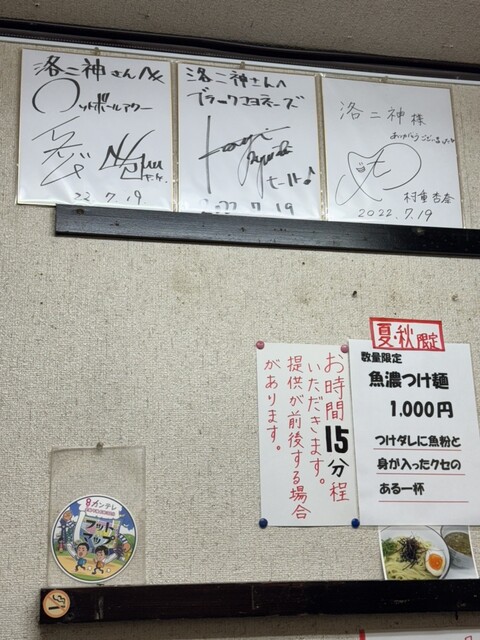 洛二神さんへ
フットボールアワー
22.7.19
洛二神さんへ
ブラックマヨネーズ
ヒート♪
2022.7.19
洛二神様
ありがとうございます
村重杏奈
2022.7.19
夏・秋限定
数量限定
魚濃つけ麺
1,000円
つけダレに魚粉と
身が入ったクセの
ある一杯
お時間15分程
いただきます。
提供が前後する場合
があります。
カンテレ
フット
マップ